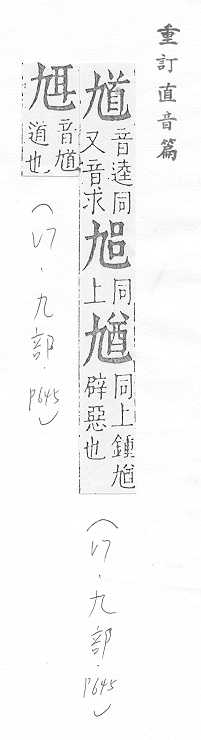 重訂直音篇
馗 音逵同又音求 同上 同上鍾馗辟惡也
（17．九部．P645）
音馗道也
（17．九部．P645）